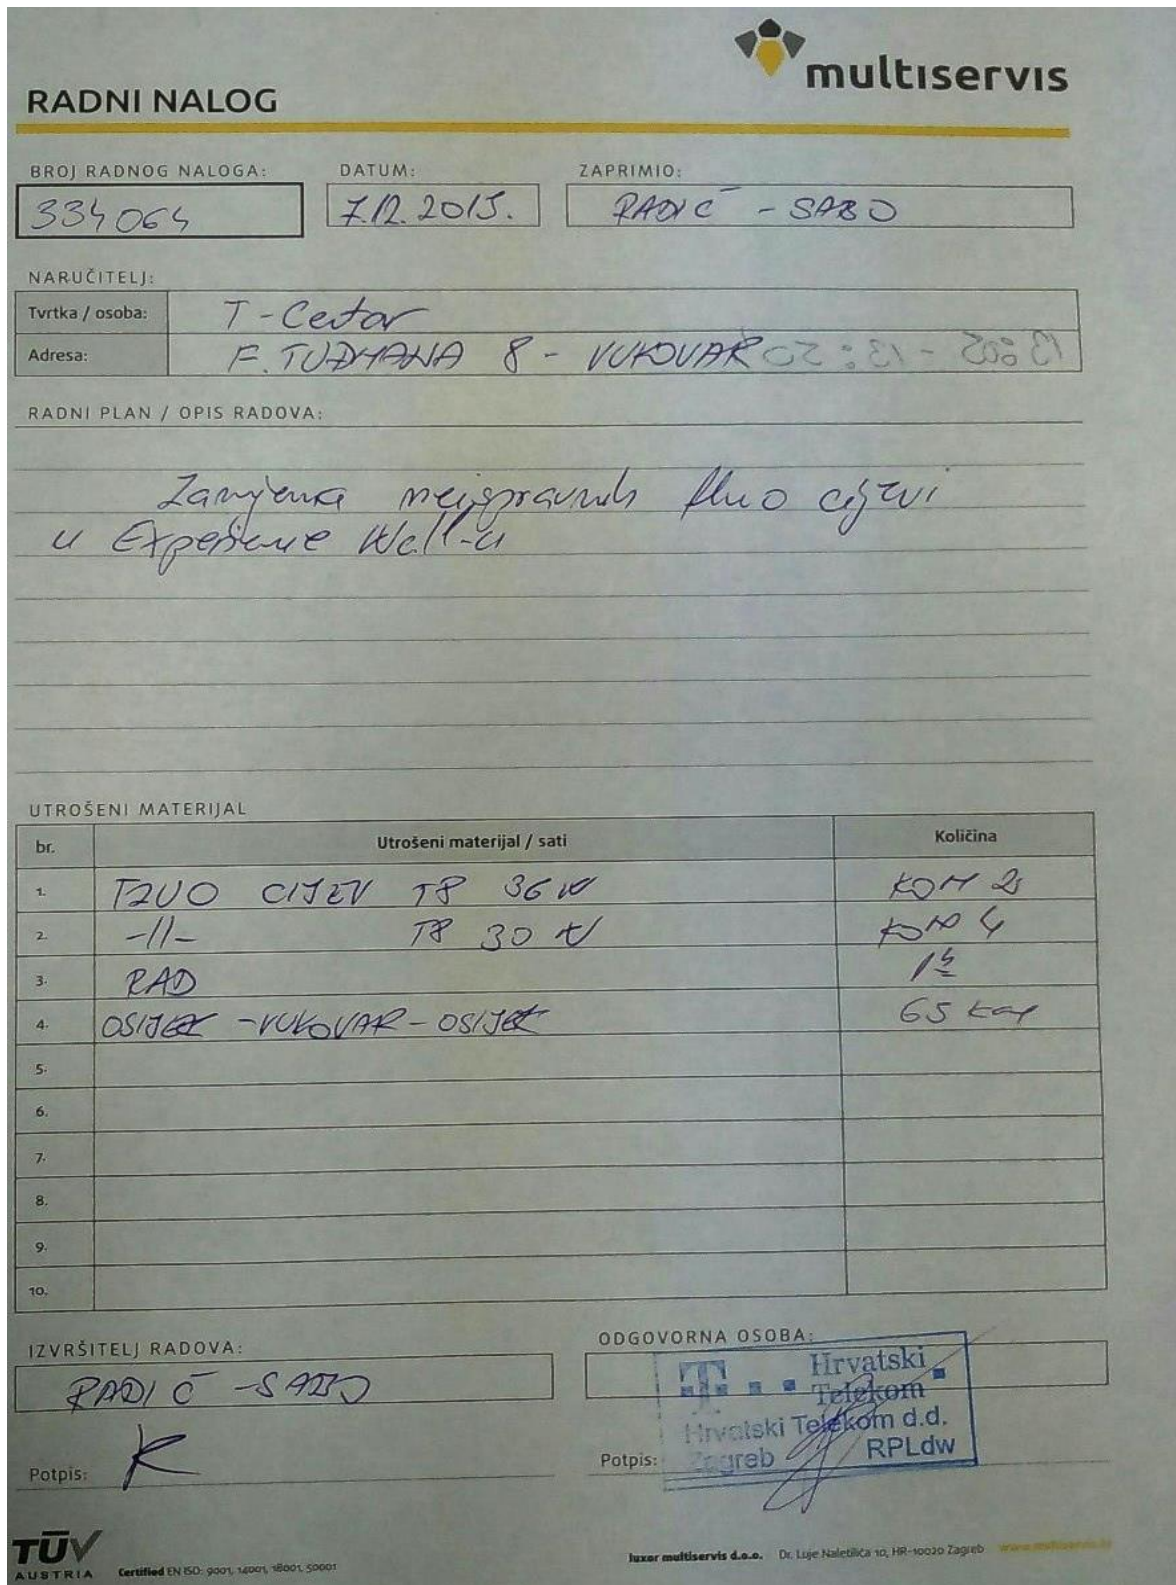 multiservis
RADNI NALOG
BROJ RADNOG NALOGA: DATUM: ZAPRIMIO:
334064 7.12.2015. RADIĆ - SABO
NARUČITELJ:
Tvrtka / osoba: T-Centar
Adresa: F. TUĐMANA 8 - VUKOVAR 13:05 - 13:50
RADNI PLAN / OPIS RADOVA:
Zamjena neispravnih fluo cijevi
u Experience Wall-u
UTROŠENI MATERIJAL
br. Utrošeni materijal / sati Količina
1. FLUO CIJEV T8 36W KOM
2. -//- T8 30W KOM 4
3. RAD 1h
4. OSIJEK - VUKOVAR - OSIJEK 65 km
5.
6.
7.
8.
9.
10.
IZVRŠITELJ RADOVA: ODGOVORNA OSOBA:
RADIĆ - SABO
T Hrvatski
Telekom
Hrvatski Telekom d.d.
Zagreb RPLdw
Potpis: Potpis:
TÜV
AUSTRIA
Certified EN ISO: 9001, 14001, 18001, 50001
luxor multiservis d.o.o. Dr. Luje Naletilića 10, HR-10020 Zagreb